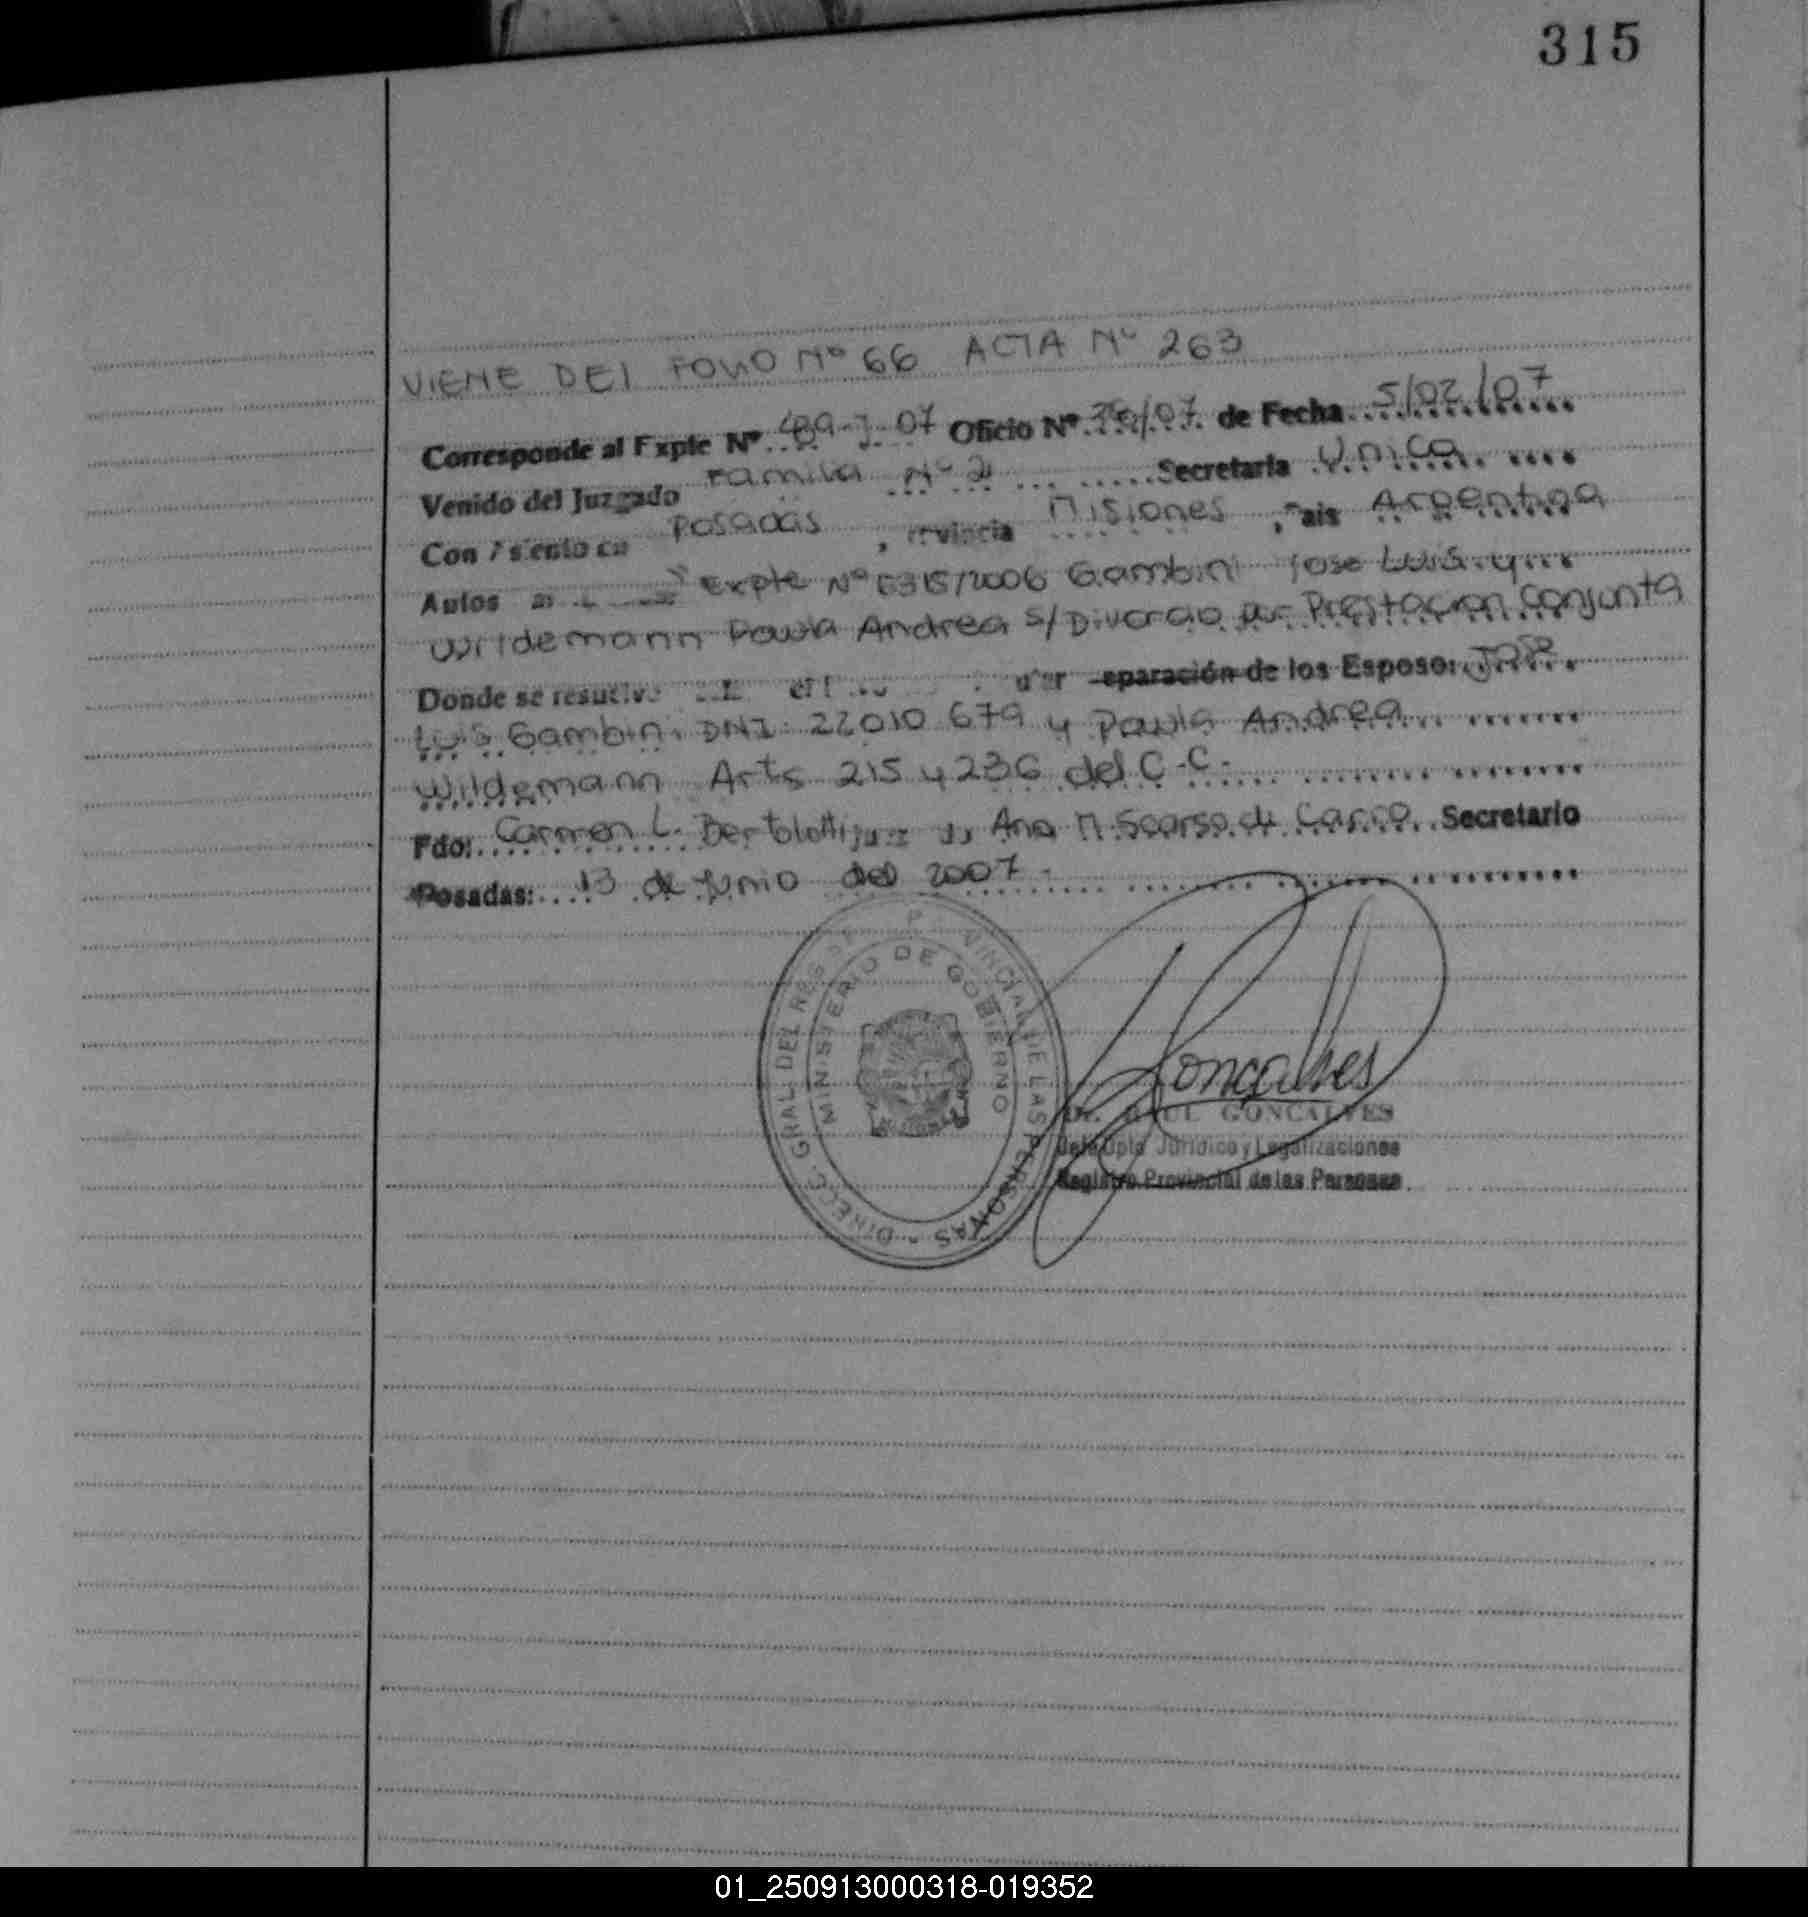 315
VIENE DEL FOLIO Nº 66 ACTA Nº 263
Corresponde al Expte Nº 07 Oficio Nº /07 de Fecha 5/02/07
Venido del Juzgado Familia Nº 2 Secretaria Unica
Con Asiento en Posadas, Provincia Misiones, Pais Argentina
Autos Expte Nº 6315/2006 Gambini Jose Luis y
Wildemann Paula Andrea S/Divorcio por Prestacion Conjunta
Donde se resuelve separación de los Esposo: Jose
Luis Gambini DNI: 22010 679 y Paula Andrea
Wildemann Arts 215 y 236 del C.C.
Fdo: Carmen L. Bertolotti Ana M. Scarso de Secretario
Posadas: 13 de Junio del 2007
DIRECC. GRAL. DEL REG. PROVINCIAL DE LAS PERSONAS
MINISTERIO DE GOBIERNO
Goncalves
Dr. RAUL GONCALVES
Jefe Dpto Jurídico y Legalizaciones
Registro Provincial de las Personas
01_250913000318-019352